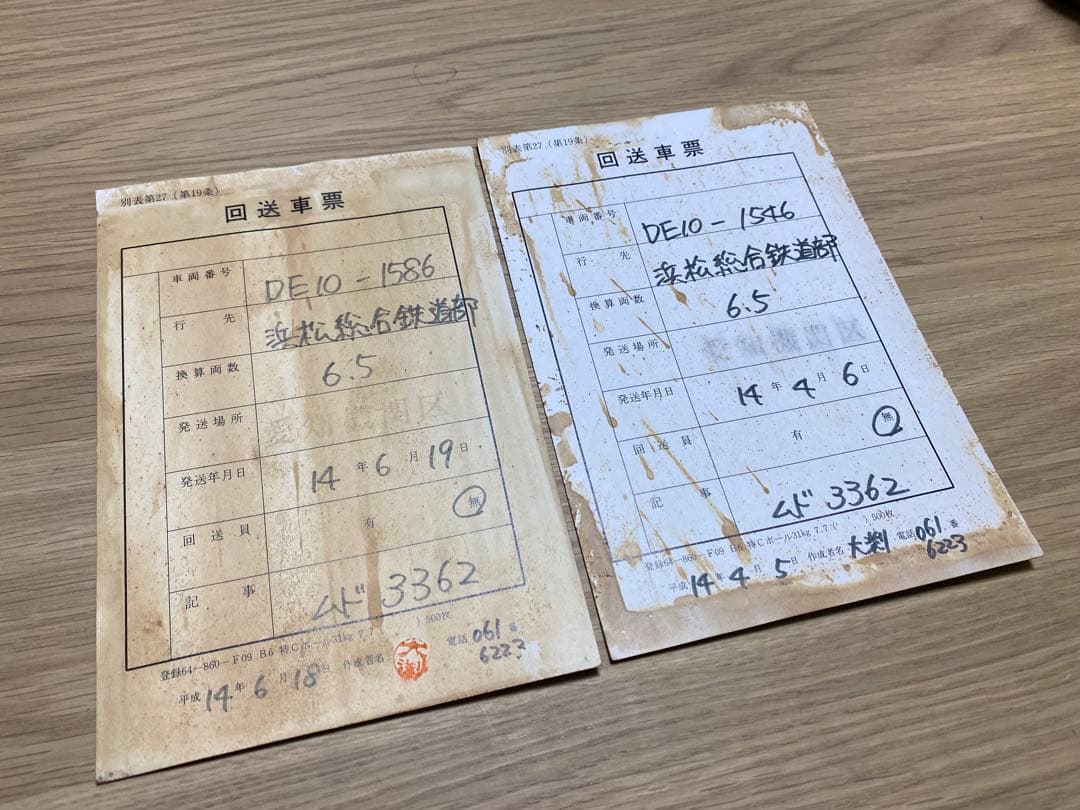 別表第27(第19条)
回送車票
車両番号 DE10-1586
行先 浜松総合鉄道部
換算両数 6.5
発送場所
発送年月日 14年6月19日
回送員 有 無
記事 ムド3362
登録64-860-F09 B6 特Cボール31kg 7.7( )500枚
平成14年6月18日 作成者名 電話061番
6223
別表第27(第19条)
回送車票
車両番号 DE10-1546
行先 浜松総合鉄道部
換算両数 6.5
発送場所
発送年月日 14年4月6日
回送員 有 無
記事 ムド3362
登録64-860-F09 B6 特Cボール31kg 7.7( )500枚
平成14年4月5日 作成者名 電話061番
6223